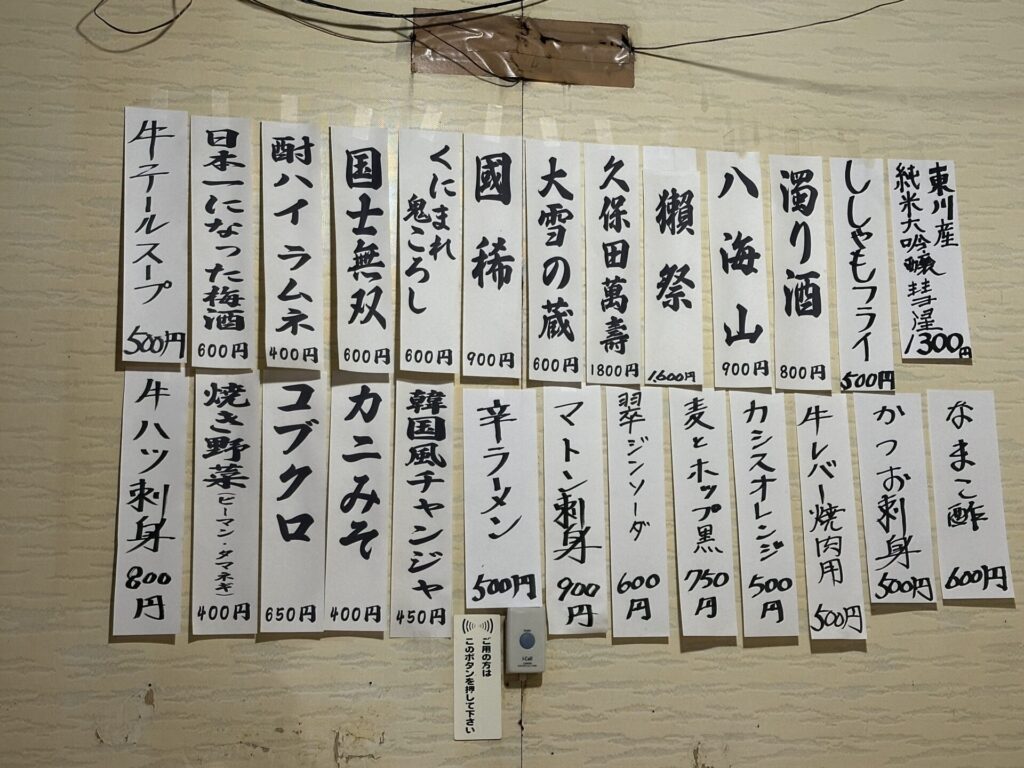 東川産
純米大吟醸彗星
1300円
ししゃもフライ
500円
濁り酒
800円
八海山
900円
獺祭
1.600円
久保田萬壽
1800円
大雪の蔵
600円
國稀
900円
くにまれ
鬼ころし
600円
国士無双
600円
酎ハイラムネ
400円
日本一になった梅酒
600円
牛テールスープ
500円
なまこ酢
600円
かつお刺身
500円
牛レバー焼肉用
500円
カシスオレンジ
500円
麦とホップ黒
750円
翠ジンソーダ
600円
マトン刺身
900円
辛ラーメン
500円
韓国風チャンジャ
450円
カニみそ
400円
コブクロ
650円
焼き野菜(ピーマン・タマネギ)
400円
牛ハツ刺身
800円
ご用の方は
このボタンを押して下さい